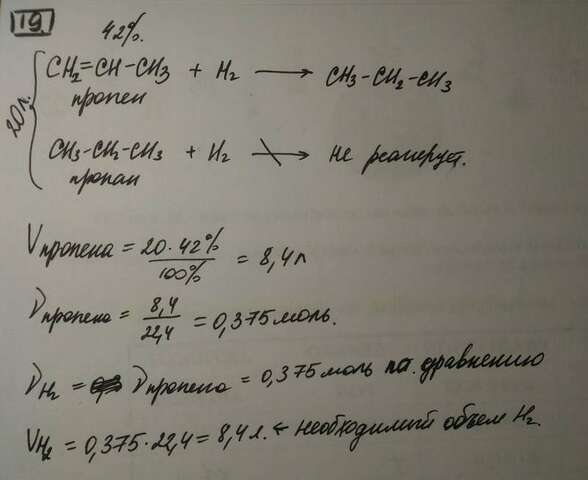 19.
42%.
20л.
CH2=CH-CH3 + H2 → CH3-CH2-CH3
пропен
CH3-CH2-CH3 + H2 → не реагирует.
пропан
Vпропена = 20·42% / 100% = 8,4л
νпропена = 8,4 / 22,4 = 0,375моль.
νH2 = νпропена = 0,375моль по уравнению
VH2 = 0,375·22,4 = 8,4л. ← необходимый объем H2.